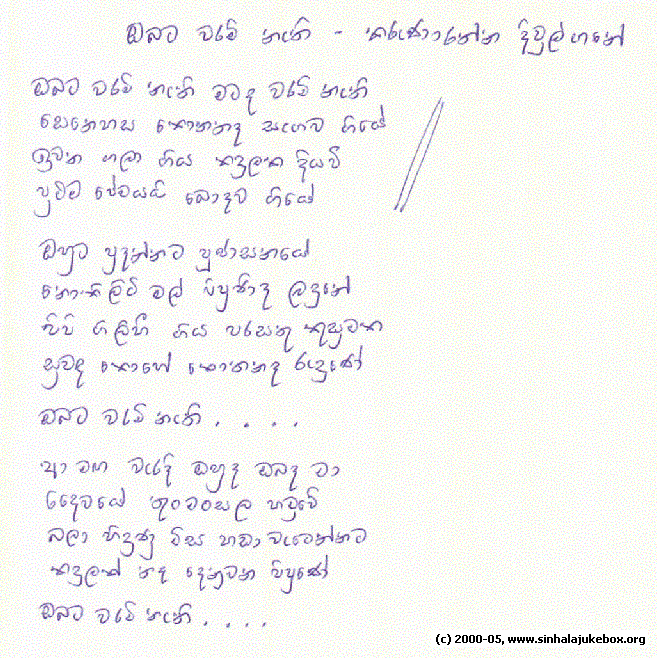 ඔබට වරම් නැති - කරුණාරත්න දිවුල්ගනේ
ඔබට වරම් නැති මටද වරම් නැති
සෙනෙහස කොතනද සැඟව ගියේ
ඉවත ගලා ගිය කඳුලක දියවී
පුරවි පෙමයයි බොඳව ගියේ
ඔහුට පුදන්නට පූජාසනයේ
නොකිලිටි මල් විපුණිද ලඳුනේ
බිම ගිලිහී ගිය පරසතු කුසුමක
සුවඳ කොහේ කොතනද රැඳුණේ
ඔබට වරම් නැති . . . .
ආ මඟ වැරදි ඔහුද ඔබද මා
දෛවයේ තුංමංසල හමුවේ
බලා හිඳුණු මිස හඬා වැටෙන්නට
කඳුලක් නැද දෙනුවන විපුණේ
ඔබට වරම් නැති . . . .
(c) 2000-05, www.sinhalajukebox.org